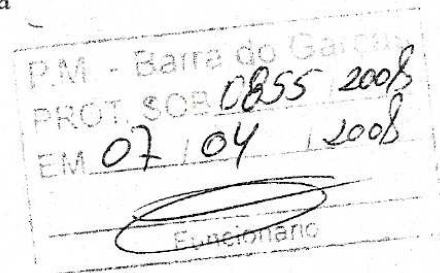 a
P.M. - Barra do Garças
PROT. SOB 0855 2008
EM 07 / 04 / 2008
Funcionário